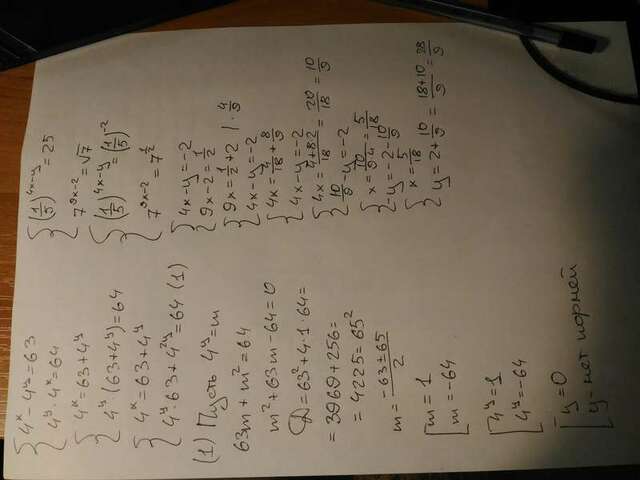 {4ˣ - 4ʸ = 63
4ʸ · 4ˣ = 64
{4ˣ = 63 + 4ʸ
4ʸ (63 + 4ʸ) = 64
{4ˣ = 63 + 4ʸ
4ʸ · 63 + 4²ʸ = 64 (1)
(1) Пусть 4ʸ = m
63m + m² = 64
m² + 63m - 64 = 0
D = 63² + 4 · 1 64 =
= 3969 + 256 =
= 4225 = 65²
m = (-63 ± 65)/2
[m = 1
m = -64
[4ʸ = 1
4ʸ = -64
[y = 0
y - нет корней
{(1/5)^(4x-y) = 25
7^(9x-2) = √7
{(1/5)^(4x-y) = (1/5)^(-2)
7^(9x-2) = 7^(1/2)
{4x - y = -2
9x - 2 = 1/2
{9x = 1/2 + 2 | · 4/9
4x - y = -2
{4x = 4/18 + 8/9
4x - y = -2
{4x = (4+8·2)/18 = 20/18 = 10/9
10/9 - y = -2
{x = 10/(9·4) = 5/18
-y = -2 - 10/9
{x = 5/18
y = 2 + 10/9 = (18+10)/9 = 28/9